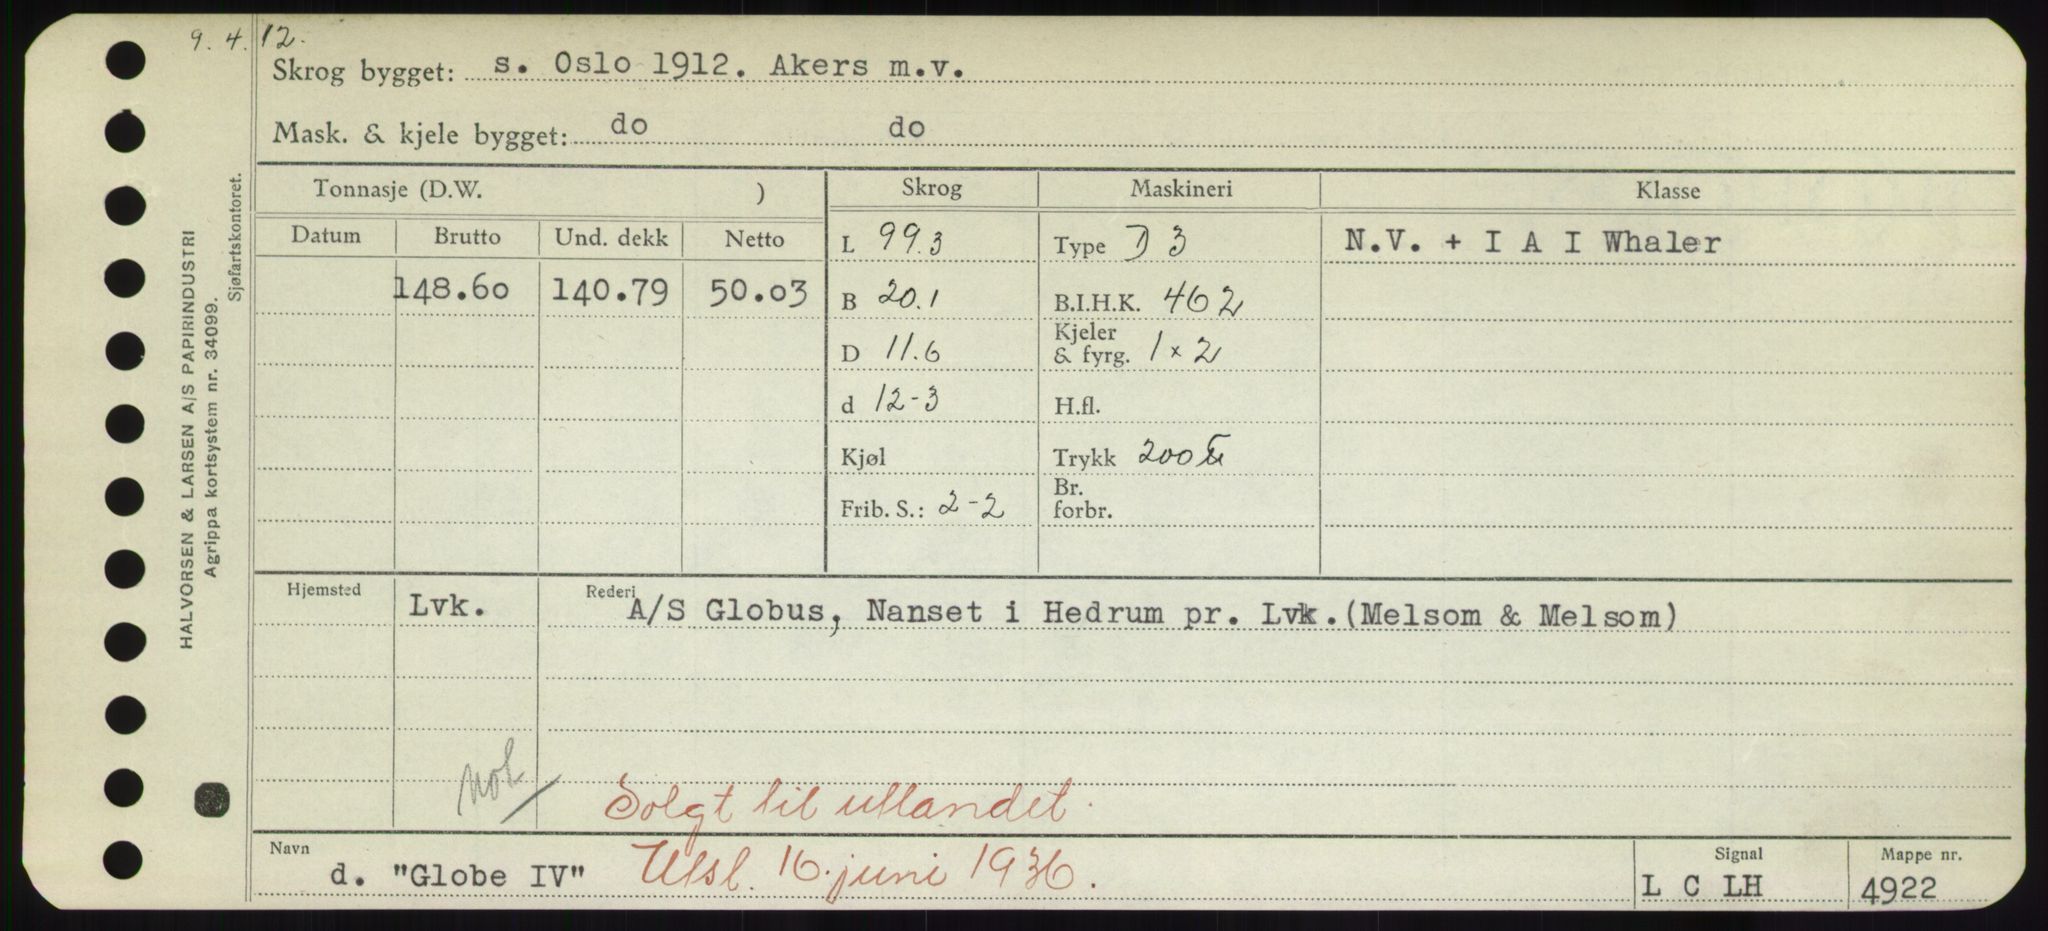 9. 4. 12.
Skrog bygget: s. Oslo 1912. Akers m.v.
Mask. & kjele bygget: do do
Tonnasje (D.W. )
Skrog
Maskineri
Klasse
Datum Brutto Und. dekk Netto
148.60 140.79 50.03
L 99.3
B 20.1
D 11.6
d 12-3
Kjøl
Frib. S.: 2-2
Type D 3
B.I.H.K. 462
Kjeler
& fyrg. 1 x 2
H.fl.
Trykk 200
Br.
forbr.
N.V. + I A I Whaler
Hjemsted Lvk. Rederi A/S Globus, Nanset i Hedrum pr. Lvk.(Melsom & Melsom)
Solgt til utlandet.
Navn d. "Globe IV" Utsl. 16. juni 1936.
Signal L C LH
Mappe nr. 4922
HALVORSEN & LARSEN A/S PAPIRINDUSTRI
Agrippa kortsystem nr. 34099.
Sjøfartskontoret.